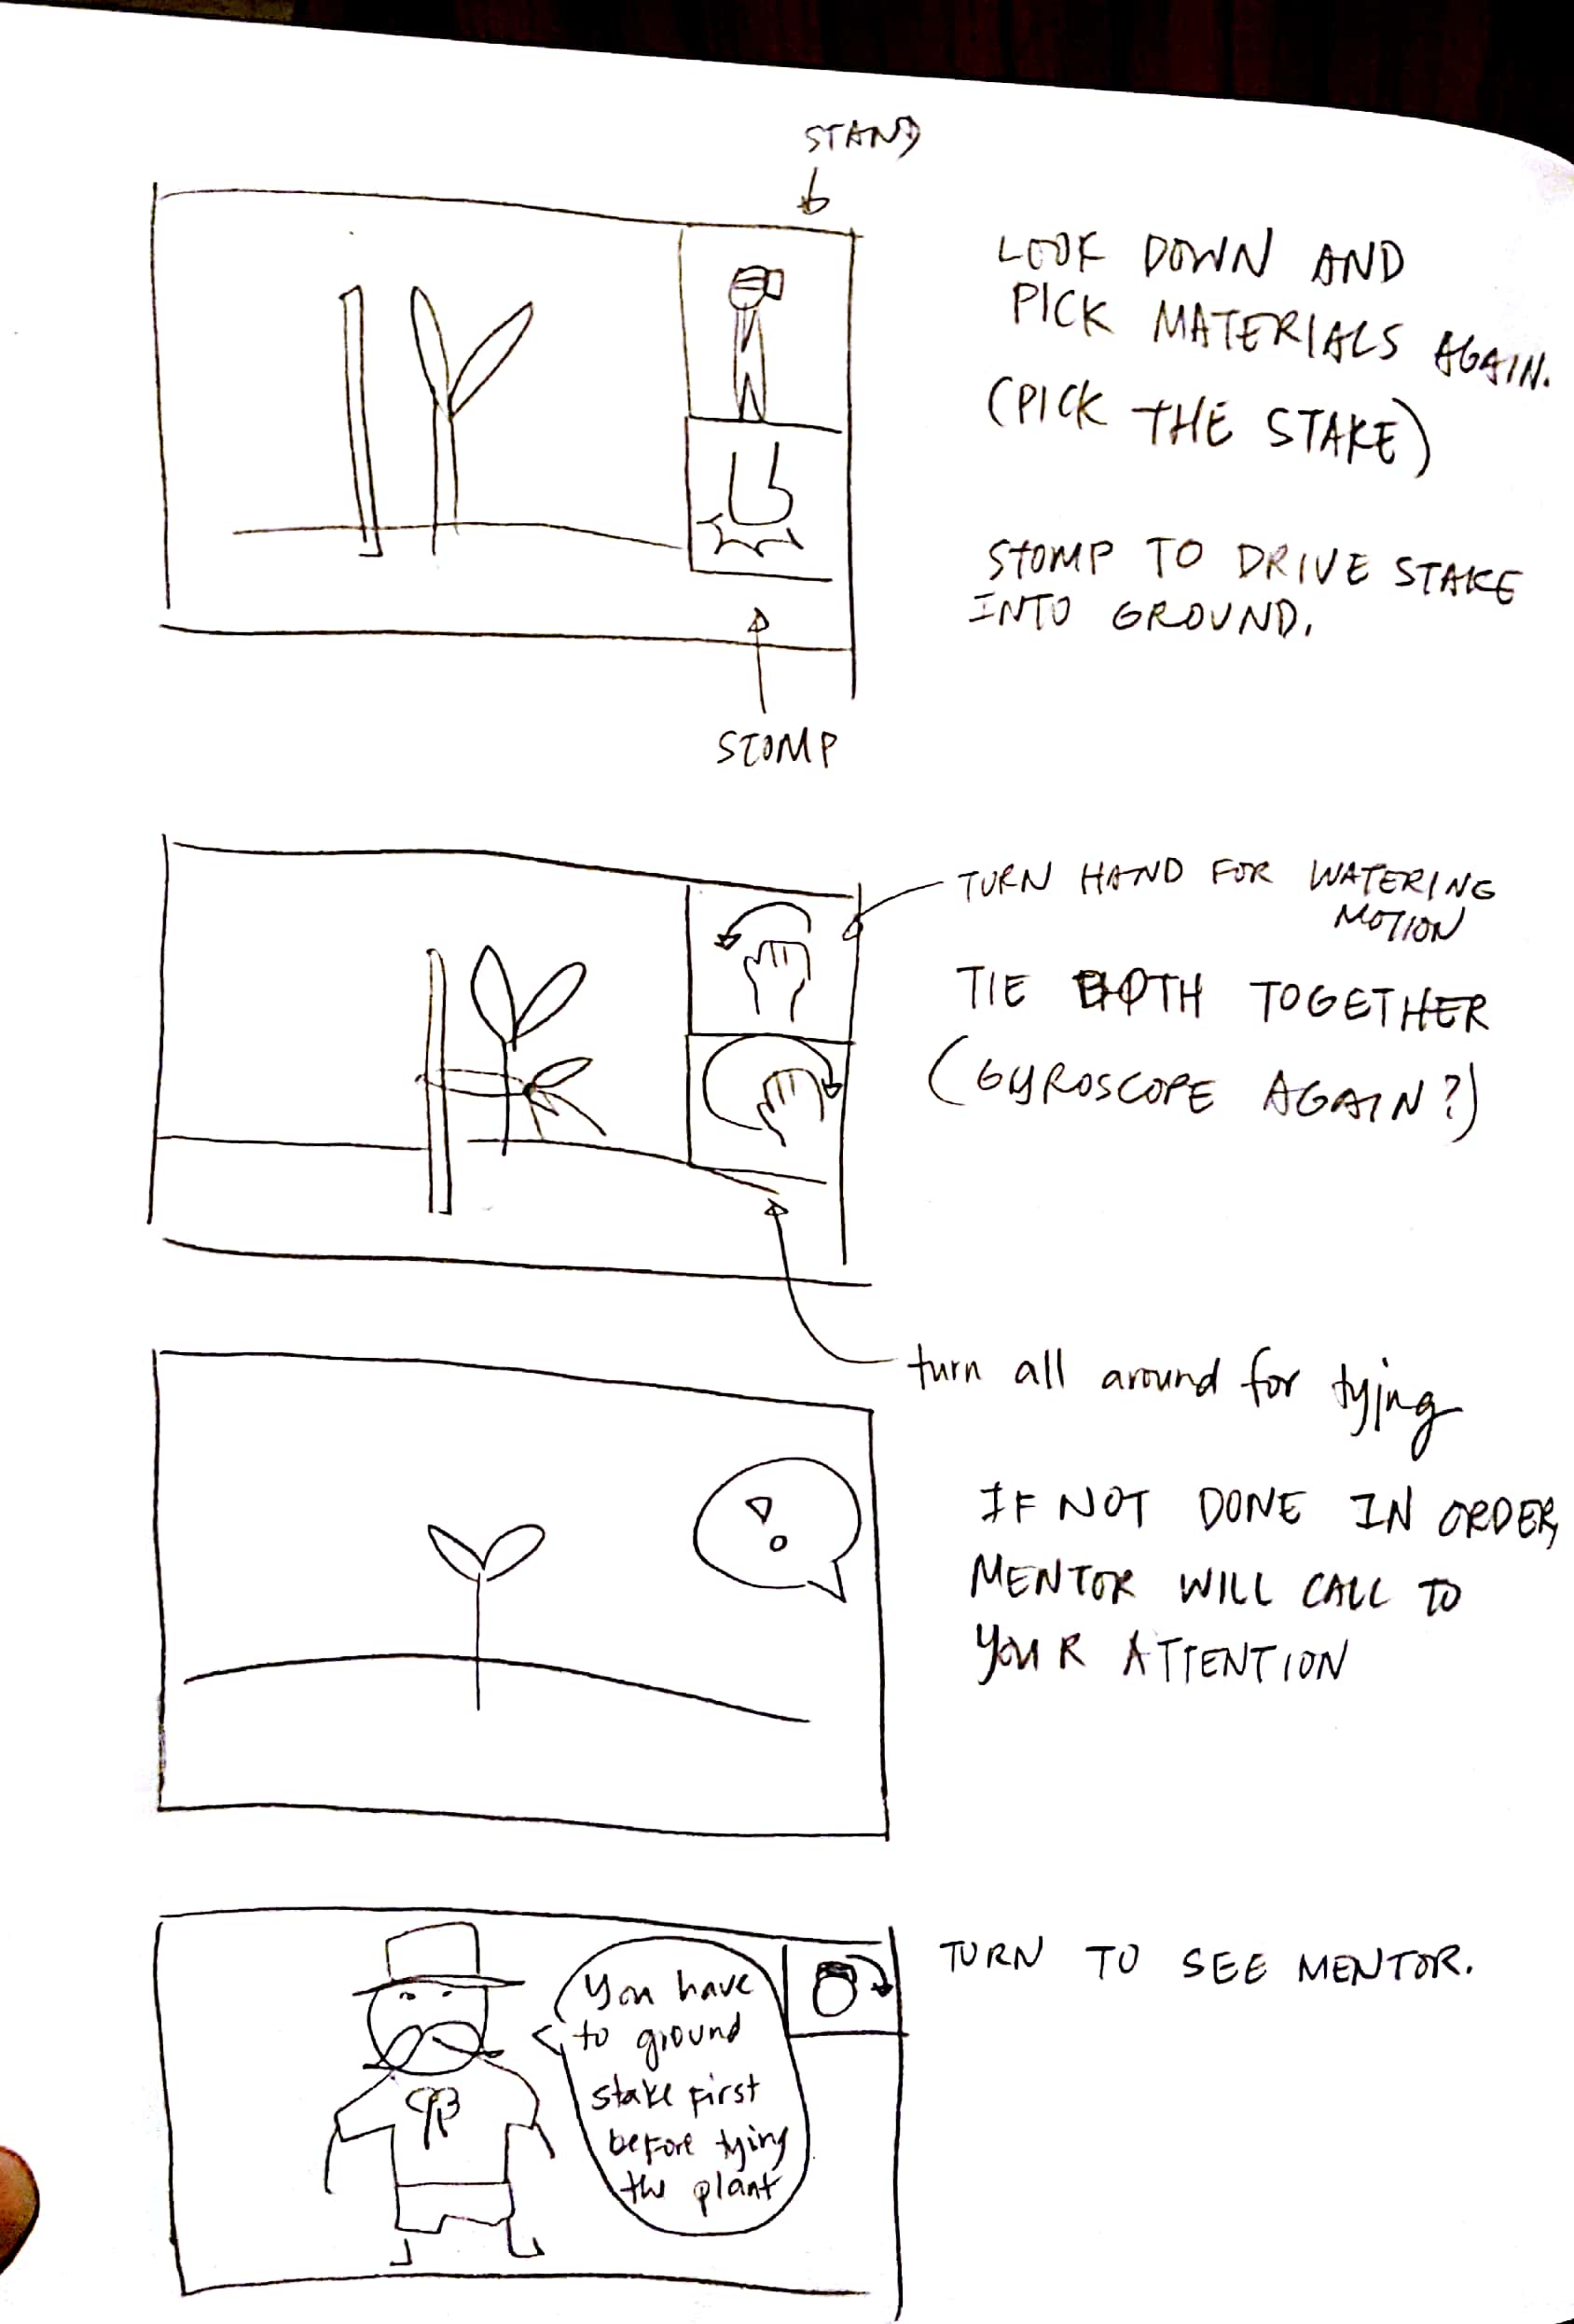 STAND
LOOK DOWN AND
PICK MATERIALS AGAIN.
(PICK THE STAKE)
STOMP TO DRIVE STAKE
INTO GROUND.
STOMP
TURN HAND FOR WATERING
MOTION
TIE BOTH TOGETHER
(GYROSCOPE AGAIN?)
turn all around for tying
IF NOT DONE IN ORDER,
MENTOR WILL CALL TO
YOUR ATTENTION
TURN TO SEE MENTOR.
You have
to ground
stake first
before tying
the plant